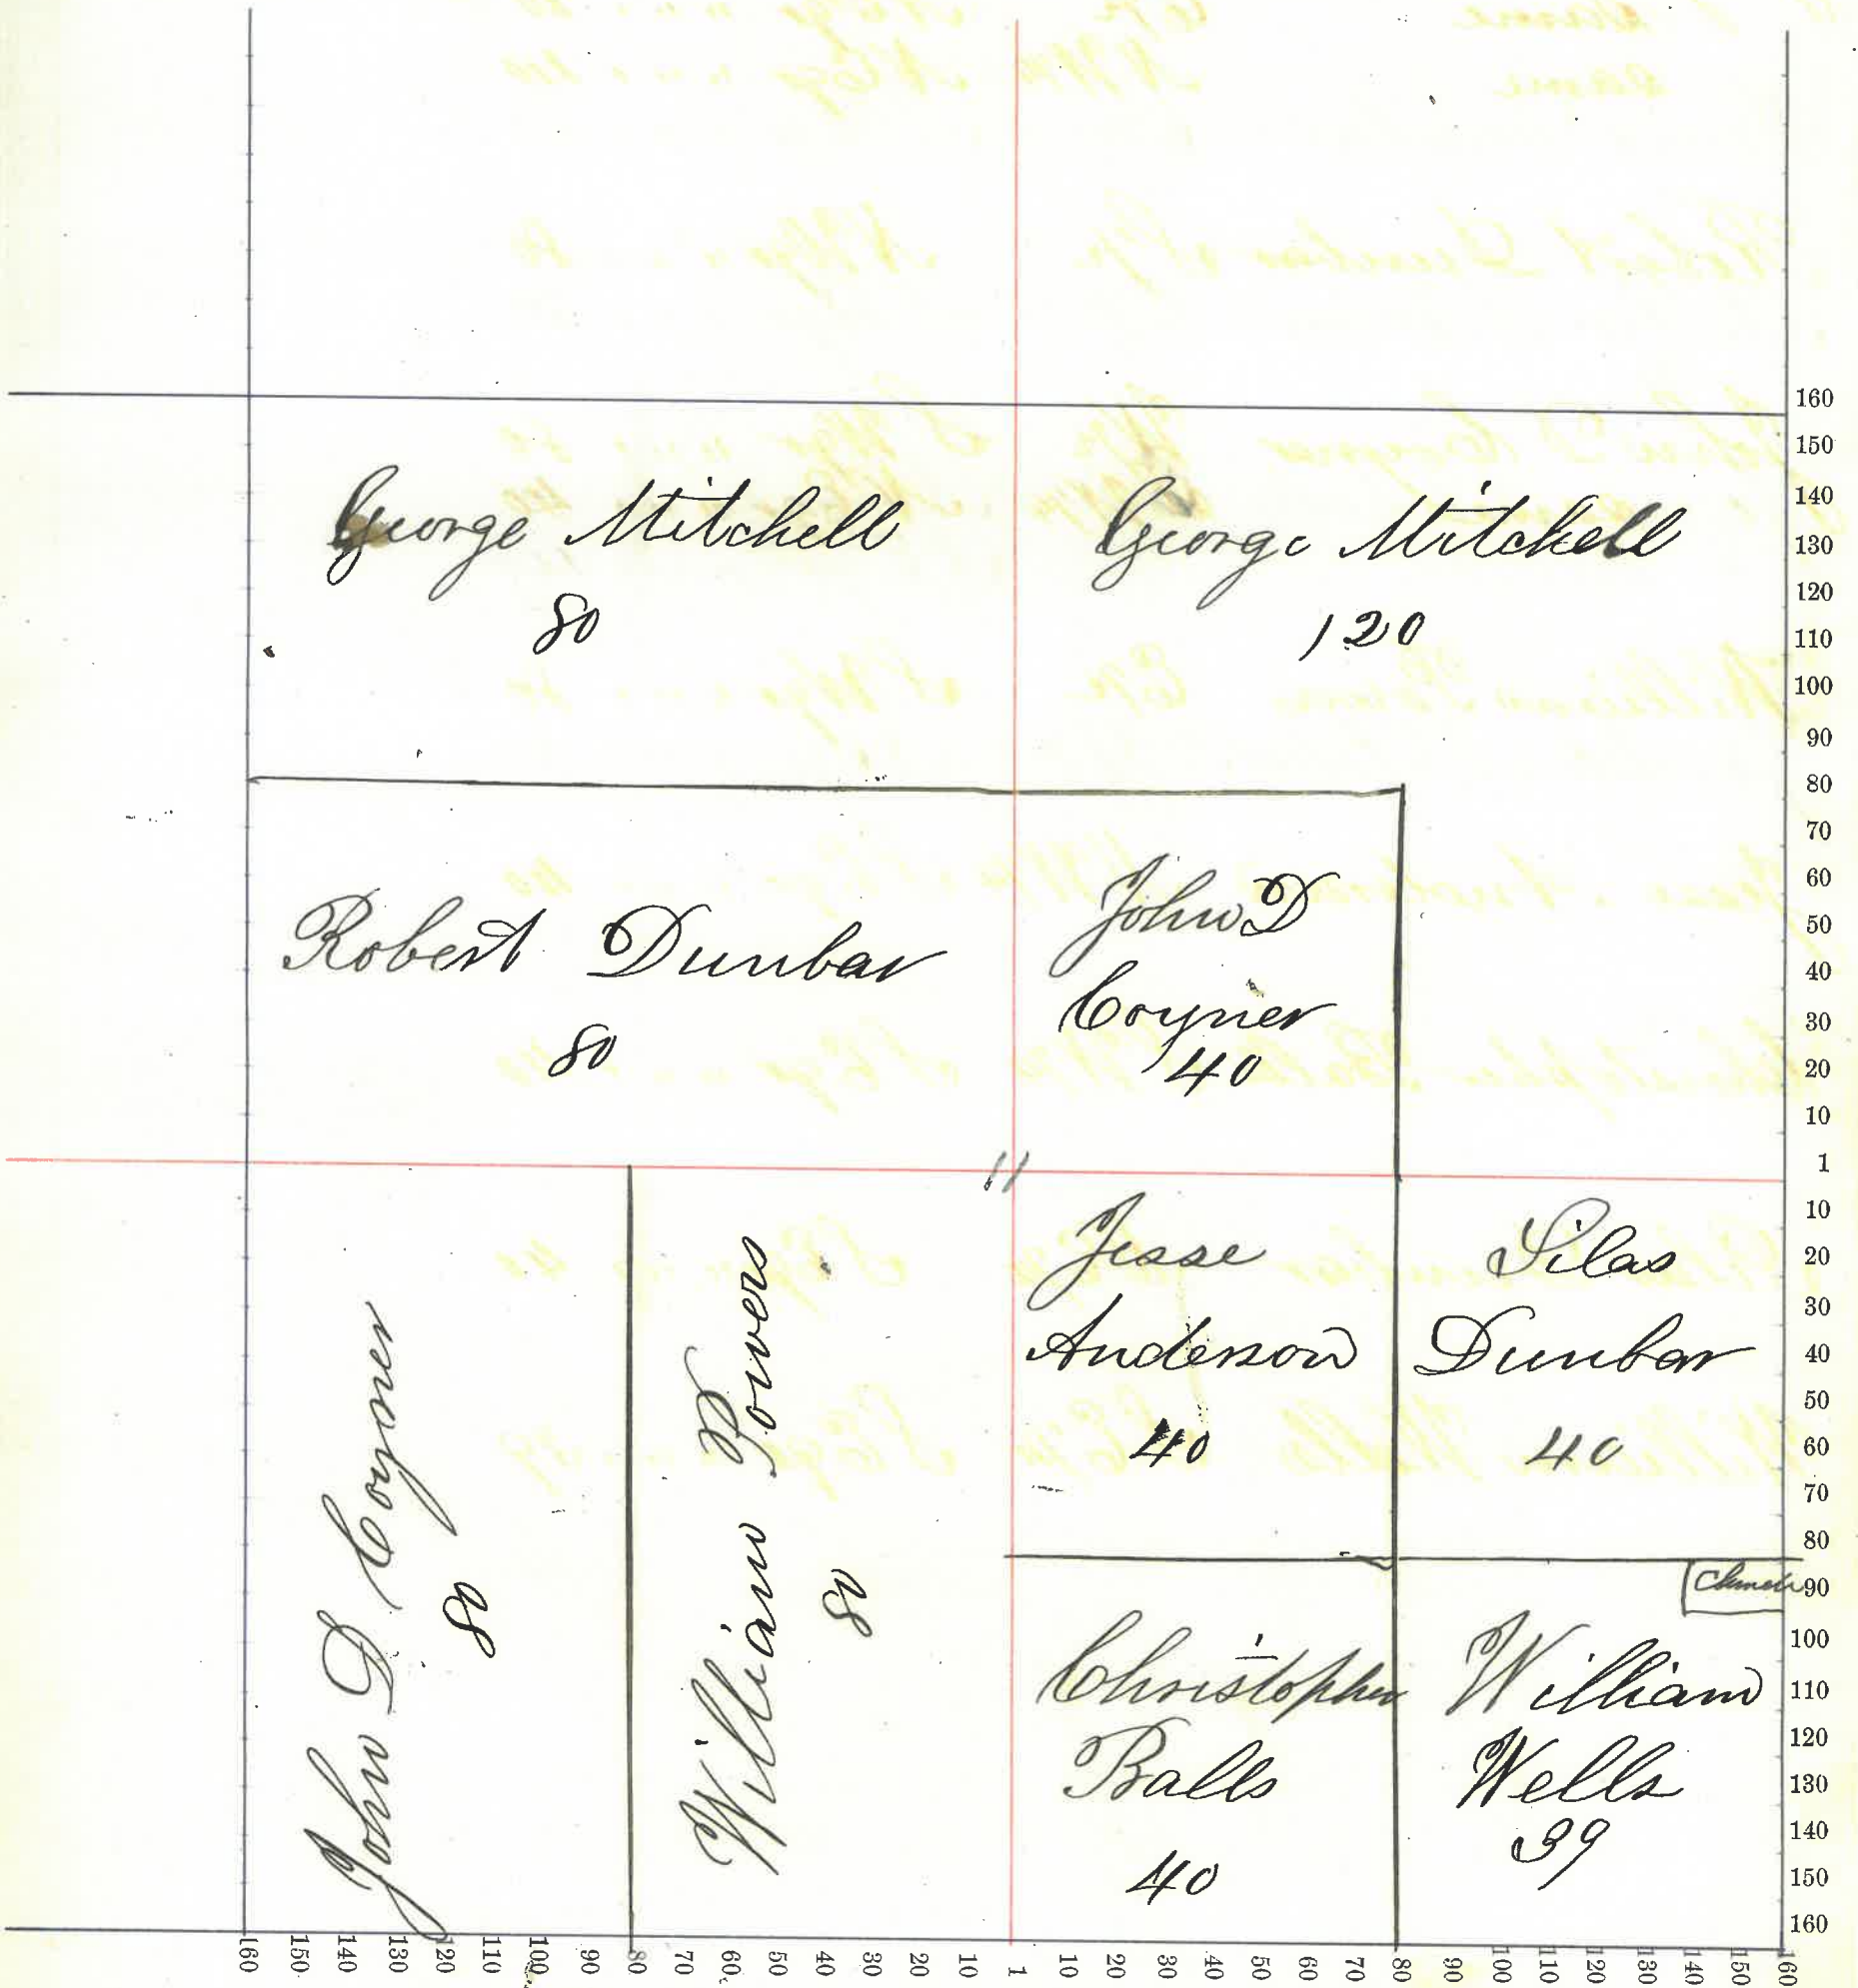 George Mitchell
80
George Mitchell
120
Robert Dunbar
80
John D
Coyner
40
11
John D Coyner
80
William Powers
80
Jesse
Anderson
40
Silas
Dunbar
40
Christopher
Balls
40
William
Wells
39
160
150
140
130
120
110
100
90
80
70
60
50
40
30
20
10
1
10
20
30
40
50
60
70
80
90
100
110
120
130
140
150
160
160 150 140 130 120 110 100 90 80 70 60 50 40 30 20 10 1 10 20 30 40 50 60 70 80 90 100 110 120 130 140 150 160